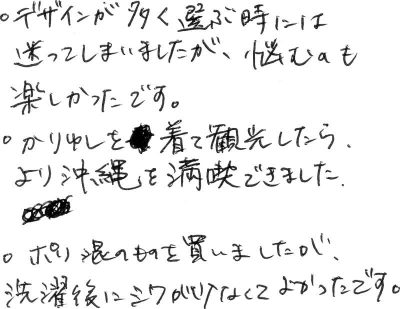 ○デザインが多く選ぶ時には
迷ってしまいましたが、悩むのも
楽しかったです。
○かりゆしを着て観光したら、
より沖縄を満喫できました。
○ポリ混のものを買いましたが、
洗濯後にシワがなくてよかったです。